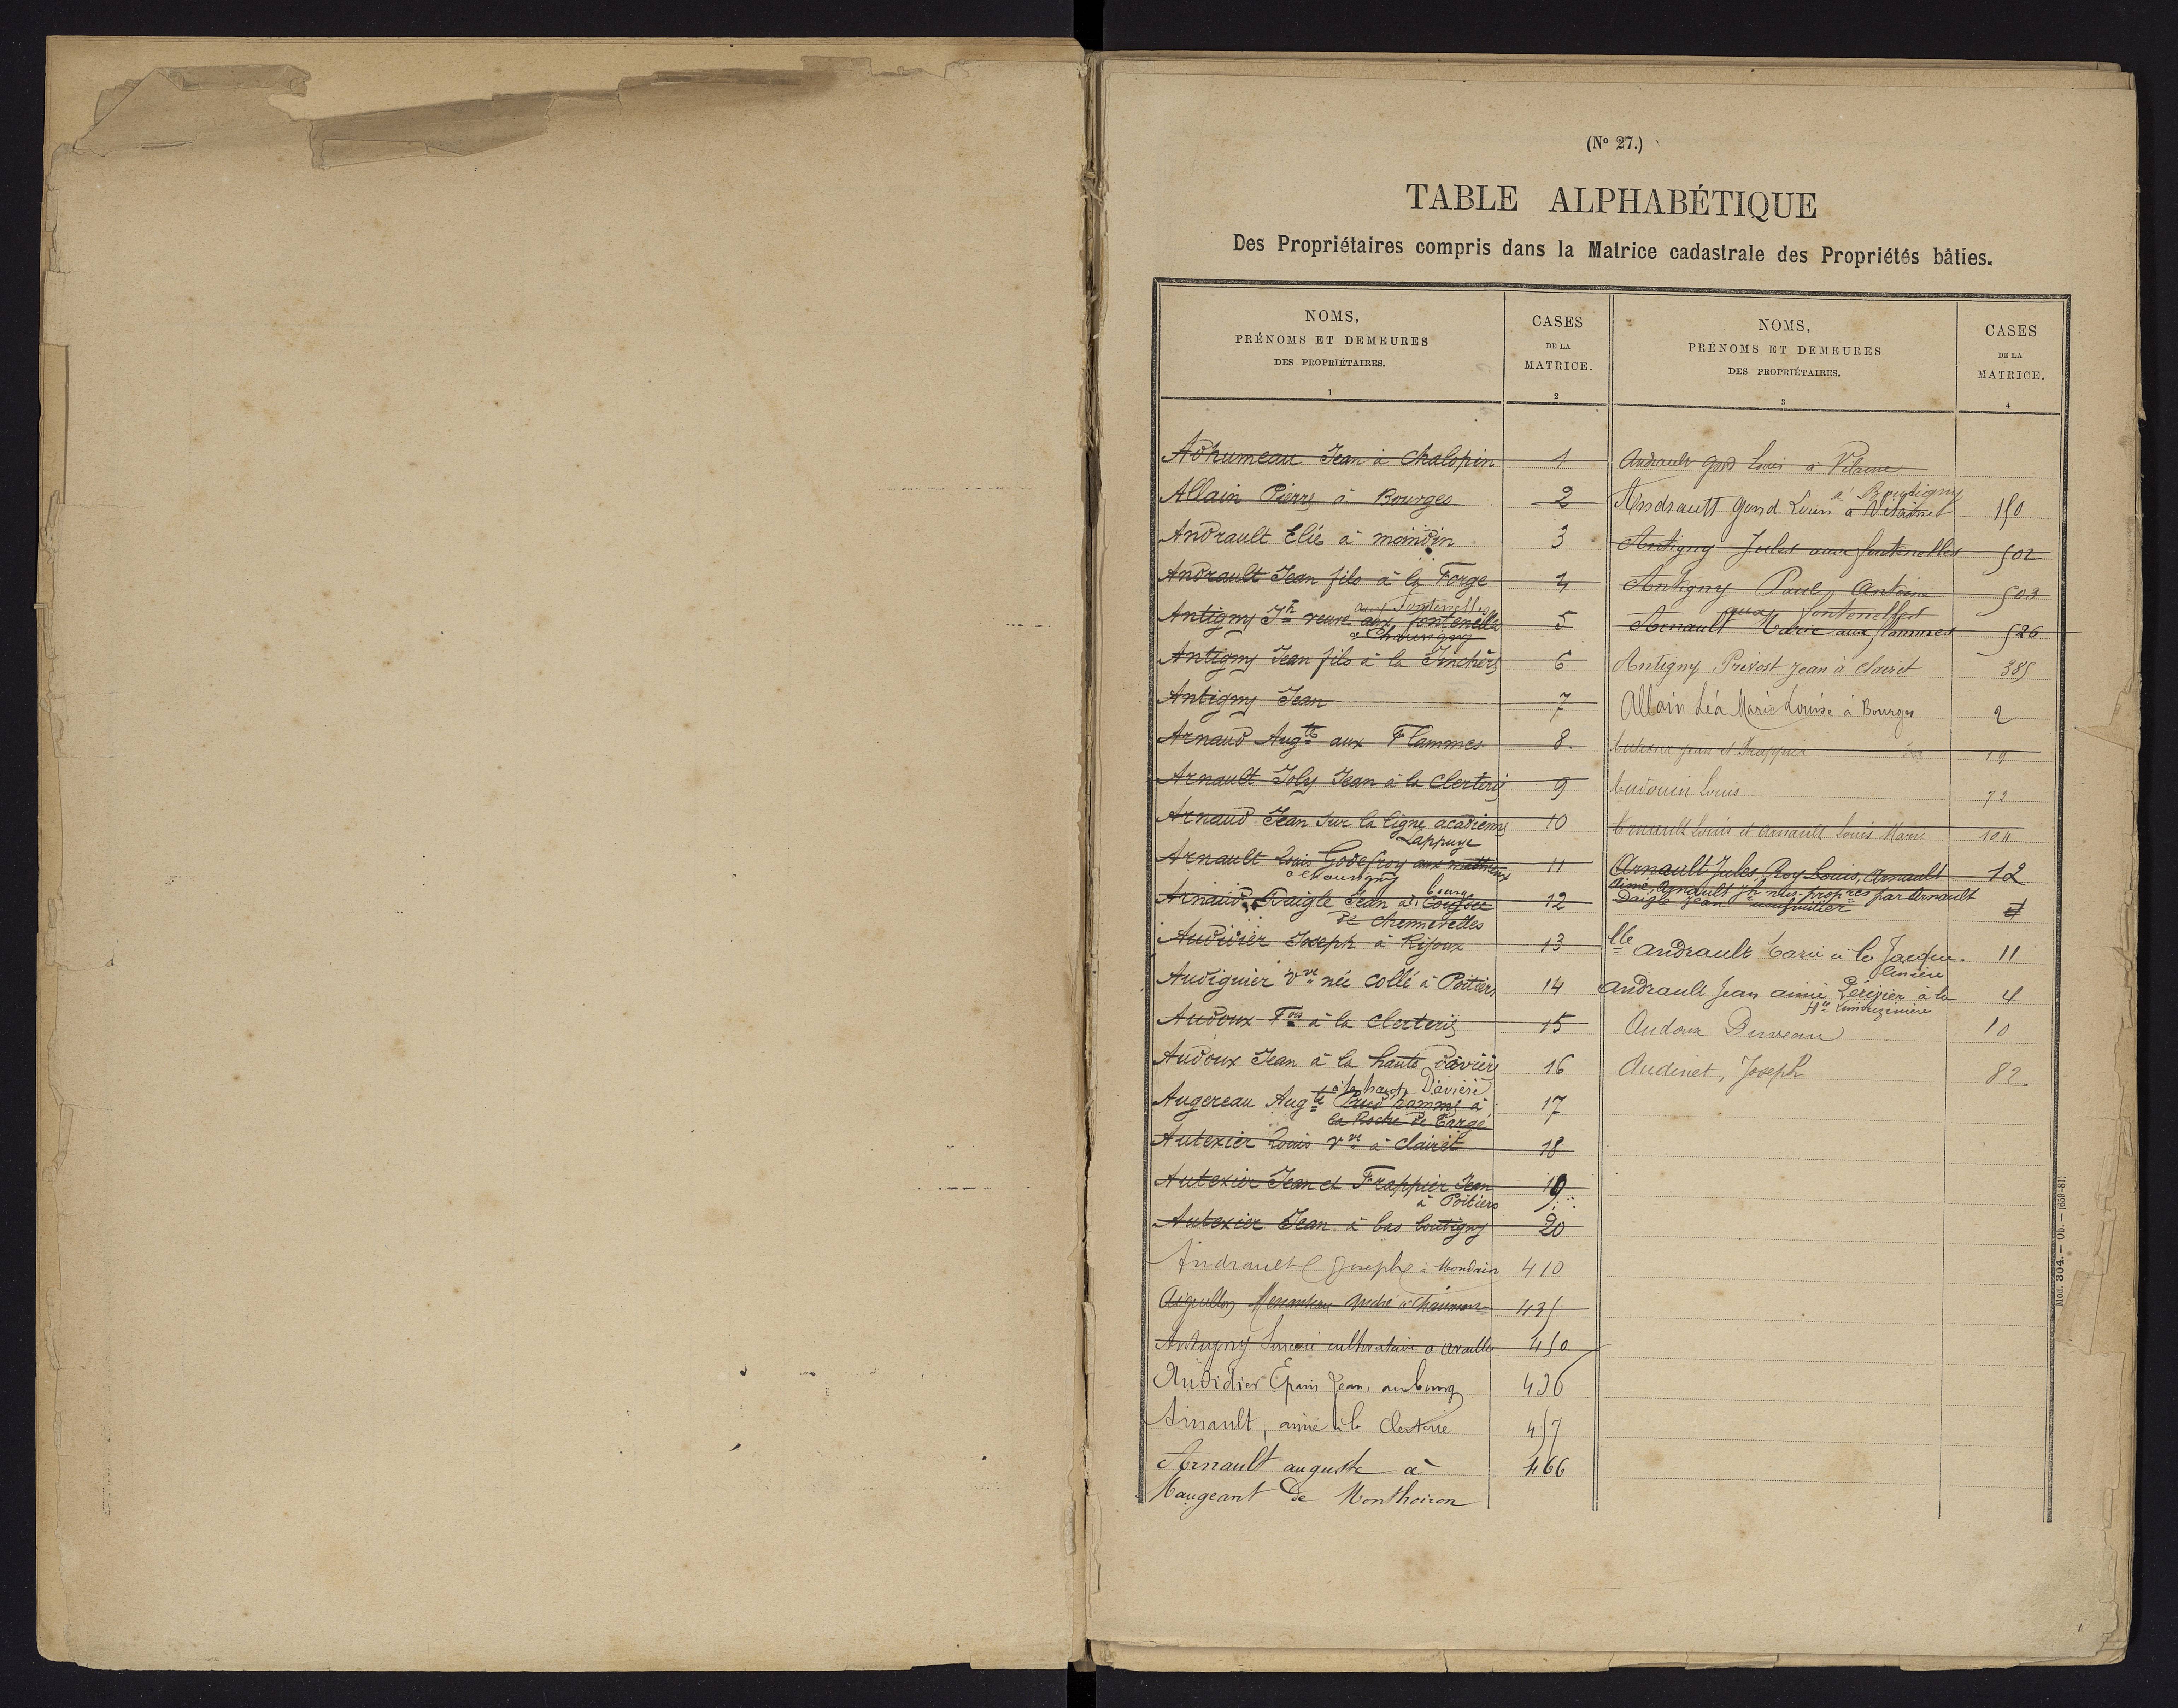 (Nº 27.)
TABLE ALPHABÉTIQUE
Des Propriétaires compris dans la Matrice cadastrale des Propriétés bâties.
NOMS,
PRÉNOMS ET DEMEURES
DES PROPRIÉTAIRES.
1
CASES
DE LA
MATRICE.
2
Adhumeau Jean à chalopin 1
Allain Pierre à Bourges 2
Andrault Elie à 3
Andrault Jean fils à la Forge 4
aux Fontenelles
Antigny Jh veuve aux fontenelles 5
à Chauvigny
Antigny Jean fils à la 6
Antigny Jean 7
Arnaud Augte aux Flammes 8
Arnault Joly Jean à la Clerterie 9
Arnaud Jean sur la ligne acadienne 10
Lappuye
Arnault Louis Godefroy aux 11
à chauvigny
Arnaud Daigle Jean au bourg 12
de chenevelles
Audidier Joseph à Rifoux 13
Audiguier vve née collé à Poitiers 14
Audoux Fois à la Clerterie 15
Audoux Jean à la haute Davière 16
à la haute Davière
Augereau Augte Prud'homme à 17
la Roche de Bargé
Autexier Louis vve à Clairet 18
Autexier Jean et Frappier Jean 19
à Poitiers
Autexier Jean à bas boutigny 20
Andrault Joseph à Mondain 410
Aiguillon André à 435
Antigny cultivateur à availle 450
Audidier Épain Jean, au bourg 436
Arnault, aimé à la Clerterie 457
Arnault auguste à 466
Maugeant de Monthoiron
NOMS,
PRÉNOMS ET DEMEURES
DES PROPRIÉTAIRES.
3
CASES
DE LA
MATRICE.
4
Andrault Gord Louis à Vilaine
Andrault Gond Louis à 150
Antigny Jules aux fontenelles 502
Antigny Paul, Antoine 503
aux fontenelles
Arnault Marie aux flammes 526
Antigny Prévost Jean à Clairet 385
Allain Léa Marie Louise à Bourges 2
Autexier Jean et Frappier 19
Audouin Louis 72
Arnault Louis et Arnault Louis Marie 104
Arnault Jules, Roy Louis, Arnault 12
Aimé, Arnault Jh nus-propres par Arnault
Daigle Jean usufruitier
Andrault Marie à la 11
Andrault Jean aimé à la 4
Audoux Derveau 10
Audinet, Joseph 82
Mod. 304. — Ob. — (659-81)